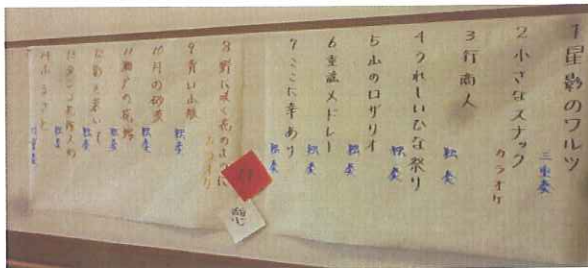 1 星影のワルツ
三重奏
2 小さなスナック
カラオケ
3 行商人
独奏
4 うれしいひな祭り
独奏
5 山のロザリオ
独奏
6 童謡メドレー
独奏
7 ここに幸あり
独奏
8 野に咲く花のように
カラオケ
9 青い山脈
独奏
10 月の砂漠
独奏
11 瀬戸の花嫁
独奏
12
独奏
13
独奏
14 ふるさと